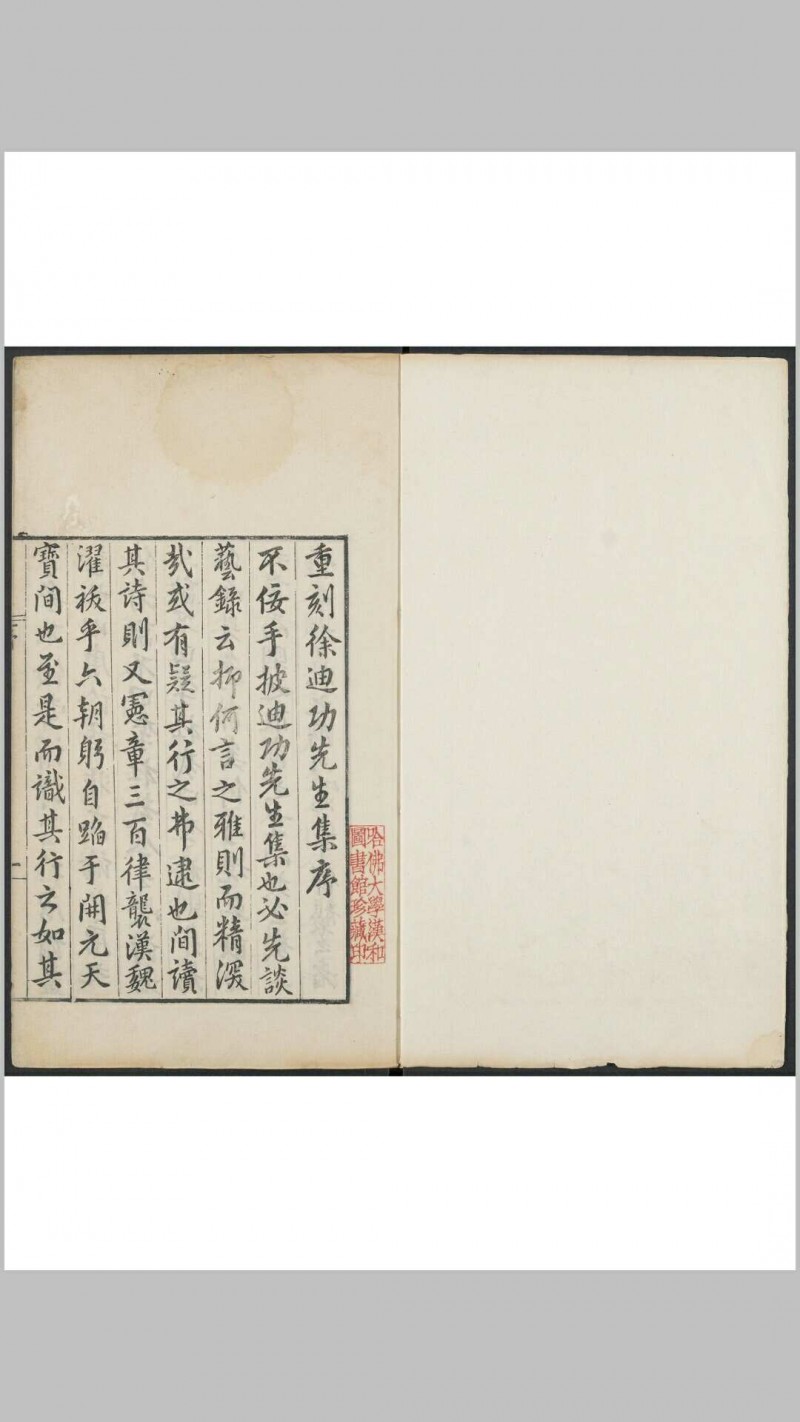 重刻徐迪功先生集序
不佞手披迪功先生集也必先談
藝錄云抑何言之雅則而精深
哉或有疑其行之弗逮也間讀
其詩則又憲章三百律襲漢魏
濯祓乎六朝躬自蹈于開元天
寶間也至是而識其行之如其
哈佛大學漢和
圖書館珍藏印